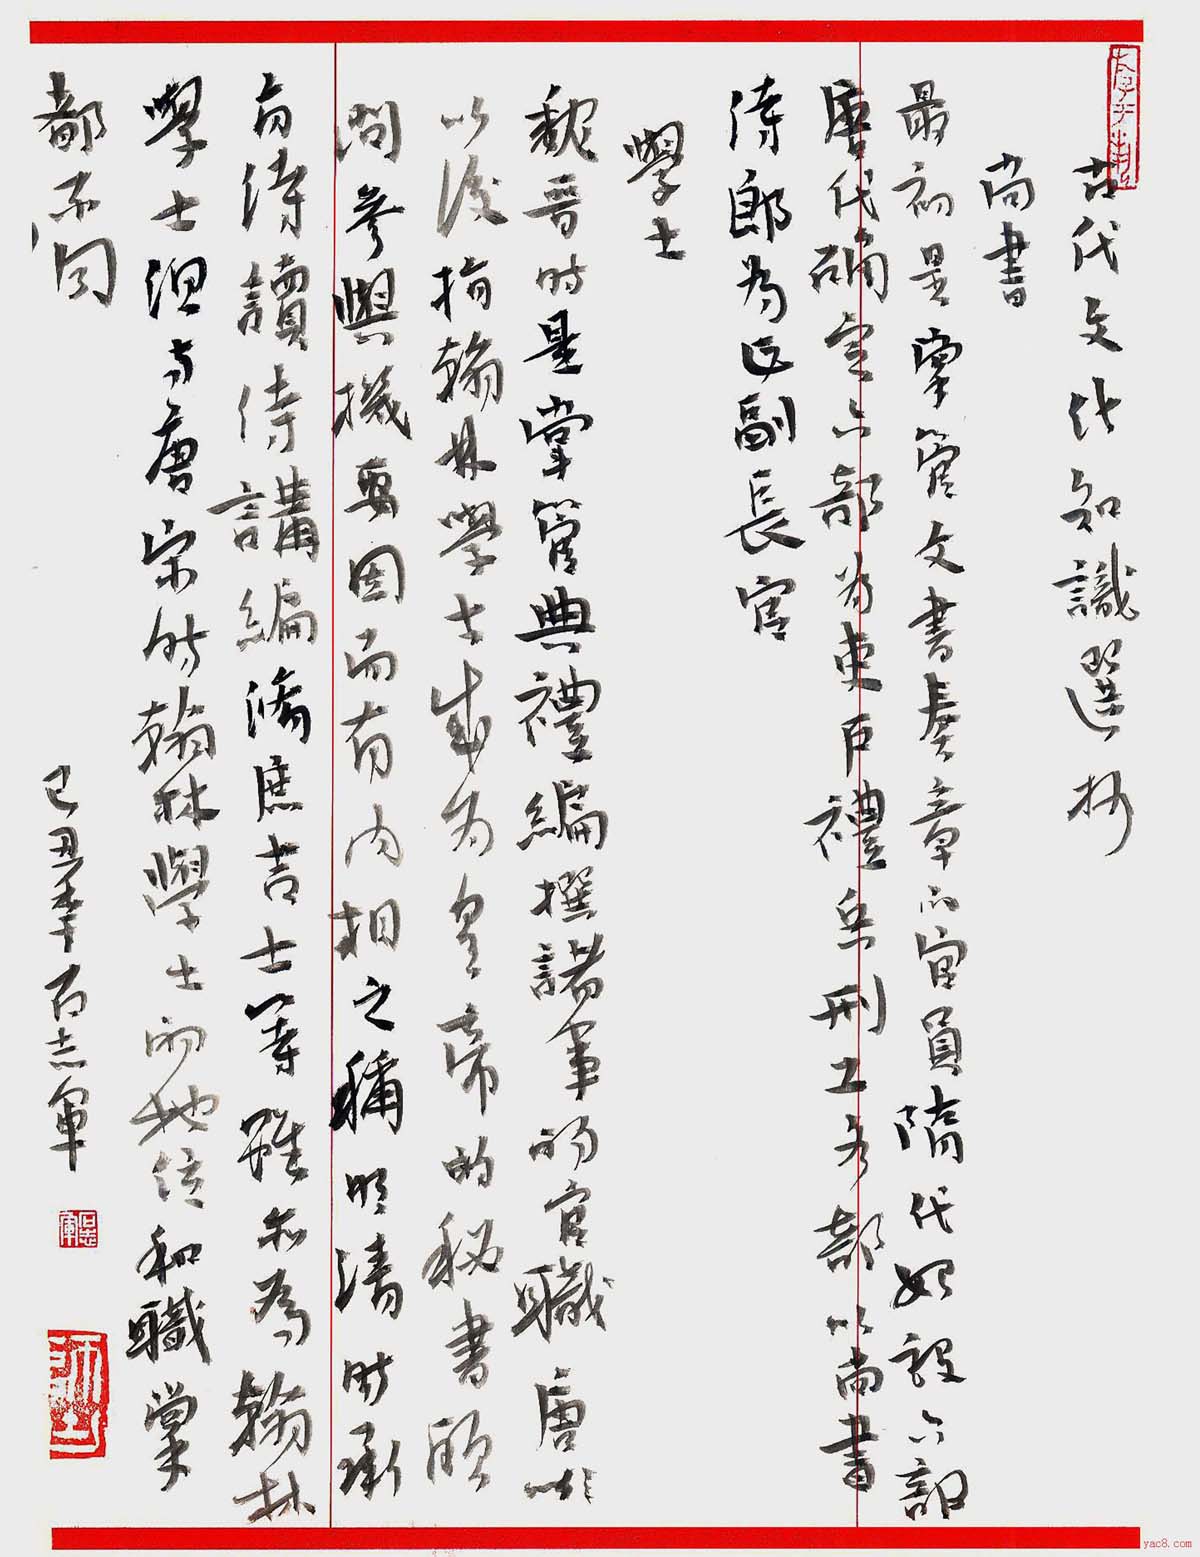 古代文化知識選抄
尚書
最初是掌管文書奏章的官員隋代始設六部
唐代確定六部為吏户禮兵刑工各部以尚書
侍郎為正副長官
學士
魏晉時是掌管典禮編撰諸事的官職唐
以後指翰林學士成为皇帝的秘書顧
問參與機要因而有内相之稱明清時承
旨侍讀侍講編脩庶吉士等雖亦為翰林
學士但与唐宋時翰林學士的地位和職掌
都不同
己丑季石志軍
yac8.com